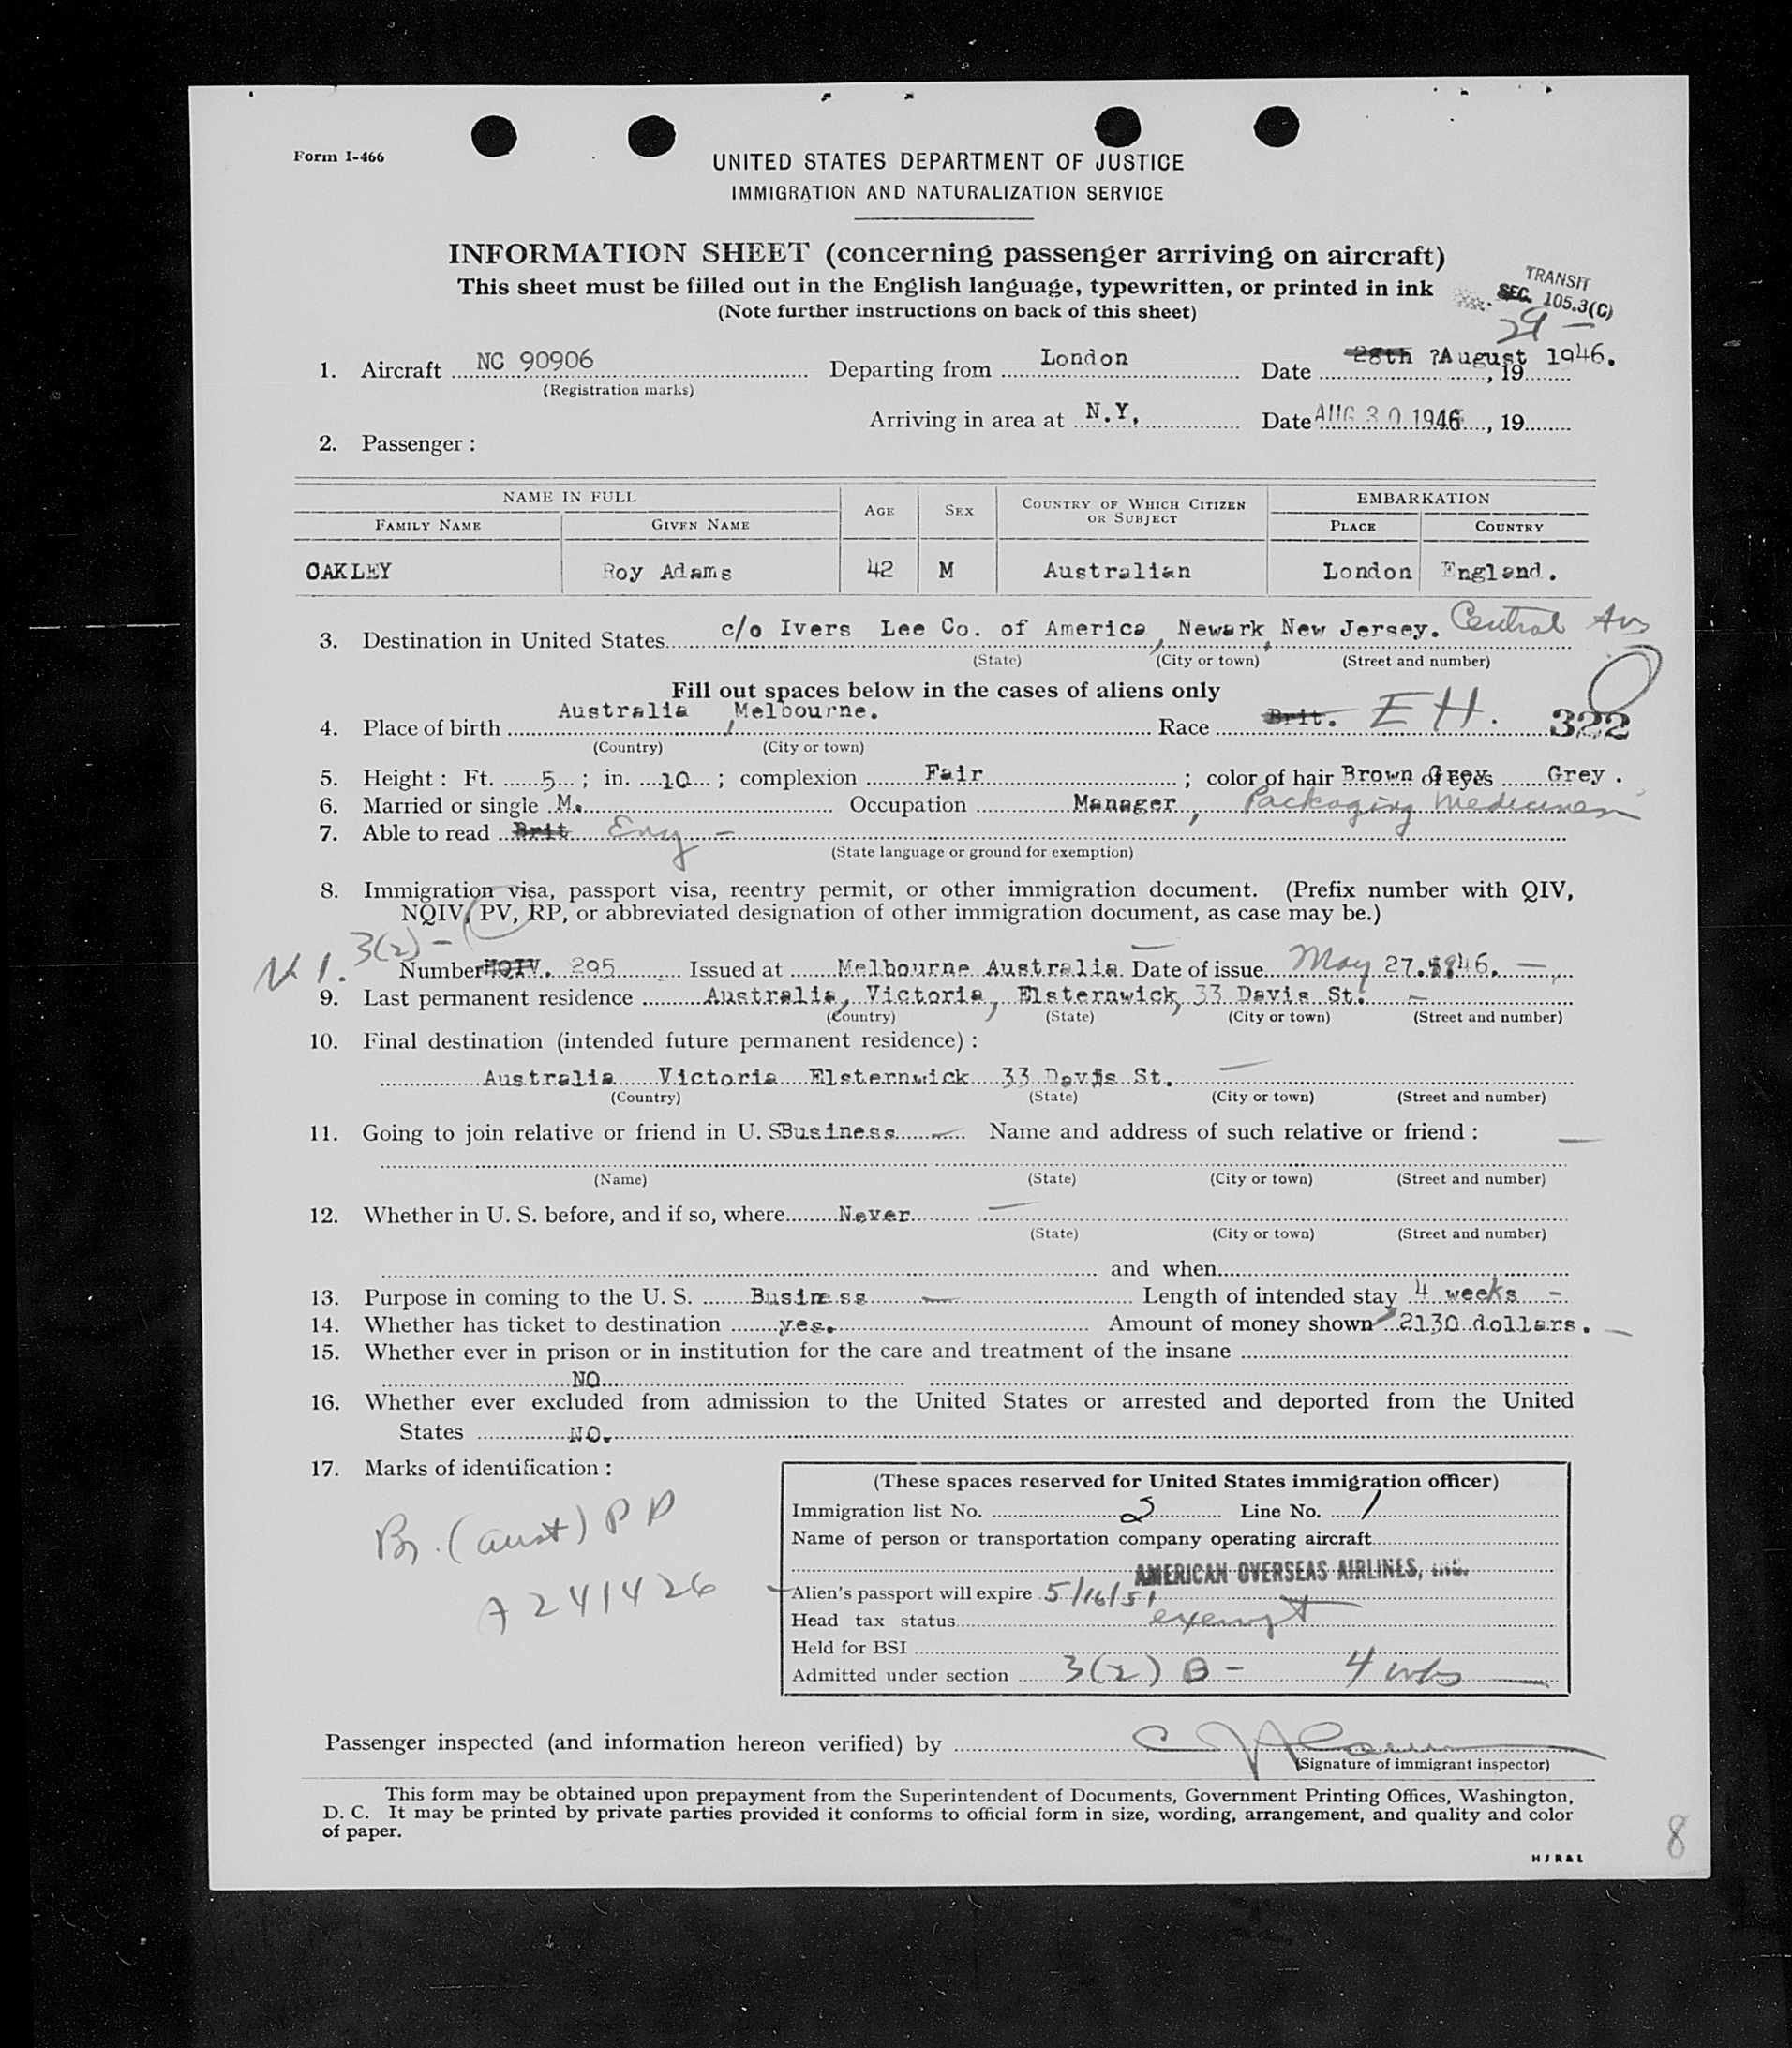 Form I-466
UNITED STATES DEPARTMENT OF JUSTICE
IMMIGRATION AND NATURALIZATION SERVICE
INFORMATION SHEET (concerning passenger arriving on aircraft)
This sheet must be filled out in the English language, typewritten, or printed in ink
(Note further instructions on back of this sheet)
TRANSIT
SEC. 105.3(C)
29 -
1. Aircraft NC 90906 Departing from London Date 28th ?August 1946. , 19
(Registration marks)
Arriving in area at N.Y. Date AUG 30 1946 , 19
2. Passenger :
NAME IN FULL AGE SEX COUNTRY OF WHICH CITIZEN OR SUBJECT EMBARKATION
FAMILY NAME GIVEN NAME PLACE COUNTRY
OAKLEY Roy Adams 42 M Australian London England.
3. Destination in United States c/o Ivers Lee Co. of America, Newark, New Jersey. Central Av
(State) (City or town) (Street and number)
Fill out spaces below in the cases of aliens only
4. Place of birth Australia, Melbourne. Race Brit. EH. 322
(Country) (City or town)
5. Height : Ft. 5 ; in. 10 ; complexion Fair ; color of hair Brown Grey of eyes Grey.
6. Married or single M. Occupation Manager, Packaging Medicines
7. Able to read Brit Eng -
(State language or ground for exemption)
8. Immigration visa, passport visa, reentry permit, or other immigration document. (Prefix number with QIV,
NQIV, PV, RP, or abbreviated designation of other immigration document, as case may be.)
3(2) -
Number NQIV. 295 Issued at Melbourne Australia Date of issue May 27. 1946. -
9. Last permanent residence Australia, Victoria, Elsternwick, 33 Davis St. -
(Country) (State) (City or town) (Street and number)
10. Final destination (intended future permanent residence) :
Australia Victoria Elsternwick 33 Davis St. -
(Country) (State) (City or town) (Street and number)
11. Going to join relative or friend in U. S Business - Name and address of such relative or friend : -
(Name) (State) (City or town) (Street and number)
12. Whether in U. S. before, and if so, where Never -
(State) (City or town) (Street and number)
and when
13. Purpose in coming to the U. S. Business - Length of intended stay 4 weeks -
14. Whether has ticket to destination yes. Amount of money shown 2130 dollars. -
15. Whether ever in prison or in institution for the care and treatment of the insane
NO
16. Whether ever excluded from admission to the United States or arrested and deported from the United
States NO.
17. Marks of identification :
Br. (aust) PP
A241426
(These spaces reserved for United States immigration officer)
Immigration list No. 2 Line No. 1
Name of person or transportation company operating aircraft
AMERICAN OVERSEAS AIRLINES, INC.
Alien's passport will expire 5/16/51
Head tax status exempt
Held for BSI
Admitted under section 3(2) B - 4 wks
Passenger inspected (and information hereon verified) by
(Signature of immigrant inspector)
This form may be obtained upon prepayment from the Superintendent of Documents, Government Printing Offices, Washington,
D. C. It may be printed by private parties provided it conforms to official form in size, wording, arrangement, and quality and color
of paper.
8